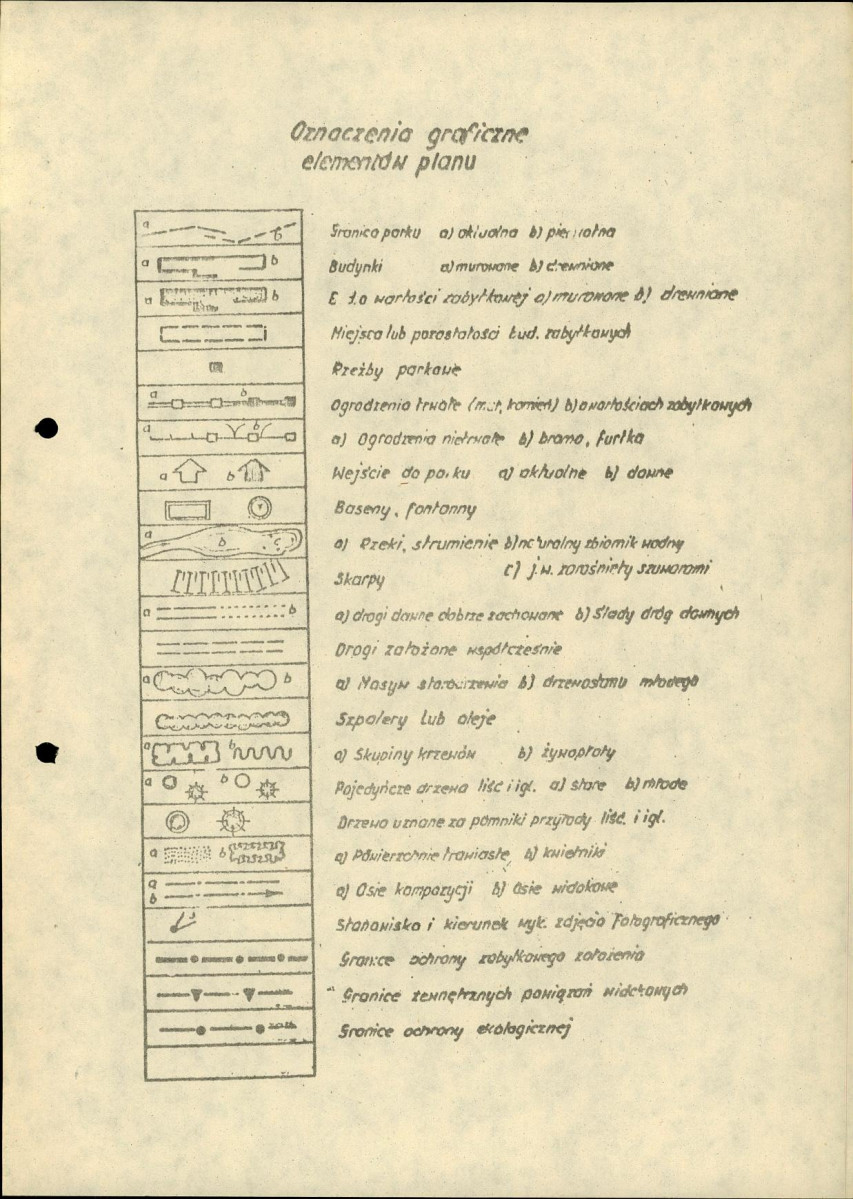 Oznaczenia graficzne
elementów planu
a b Granica parku a) aktualna b) pierwotna
a b Budynki a) murowane b) drewniane
a b o wartości zabytkowej a) murowane b) drewniane
Miejsca lub pozostałości bud. zabytkowych
Rzeźby parkowe
a b Ogrodzenia trwałe (mur, kamień) b) o wartościach zabytkowych
a b a) Ogrodzenia nietrwałe b) brama, furtka
a b Wejście do parku a) aktualne b) dawne
Baseny, fontanny
a b a) Rzeki, strumienie b) naturalny zbiornik wodny
c) j.w. zarośnięty szuwarami
Skarpy
a b a) drogi dawne dobrze zachowane b) Ślady dróg dawnych
Drogi założone współcześnie
a b a) Masyw starodrzewia b) drzewostanu młodego
Szpalery lub aleje
a b a) Skupiny krzewów b) żywopłoty
a b Pojedyńcze drzewa liść i igl. a) stare b) młode
Drzewa uznane za pomniki przyrody liść. i igl.
a b a) Powierzchnie trawiaste, b) kwietniki
a
b a) Osie kompozycji b) Osie widokowe
Stanowisko i kierunek wyk. zdjęcia fotograficznego
Granice ochrony zabytkowego założenia
Granice zewnętrznych powiązań widokowych
Granice ochrony ekologicznej